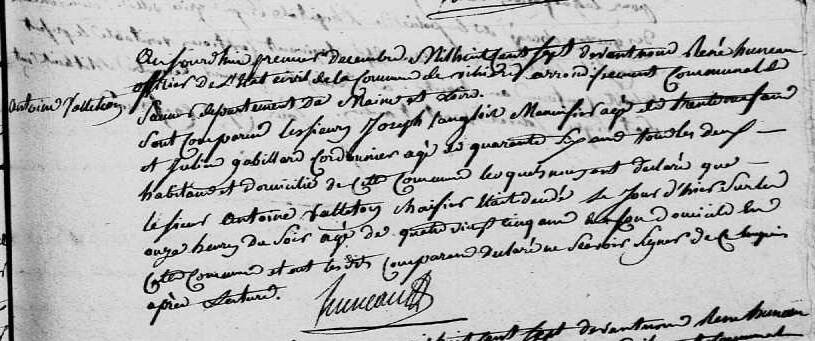 Aujourdhui premier decembre Mil huit cent sept devant nous René huneau
officier de L'état civil de la Commune de vihiers arrondissement Communal de
Antoine Valleton
Saumur departement de Maine et Loire.
Sont comparu les sieurs Joseph Langlois Menuisier agé de trente neuf ans
et Julien gabillard Cordonnier agé de quarante six ans tous les deux
habitans et domicilié de Cette Commune les quels nous ont declaré que
le sieur Antoine Valleton Chaisier était decedé le Jour d'hier sur les
onze heures du soir agé de quatre vingt cinq ans en son domicile en
Cette Commune et ont les dits Comparans declaré ne Scavoir Signer de Ce enquis
après Lecture.
huneau
huit cent sept devant nous René huneau